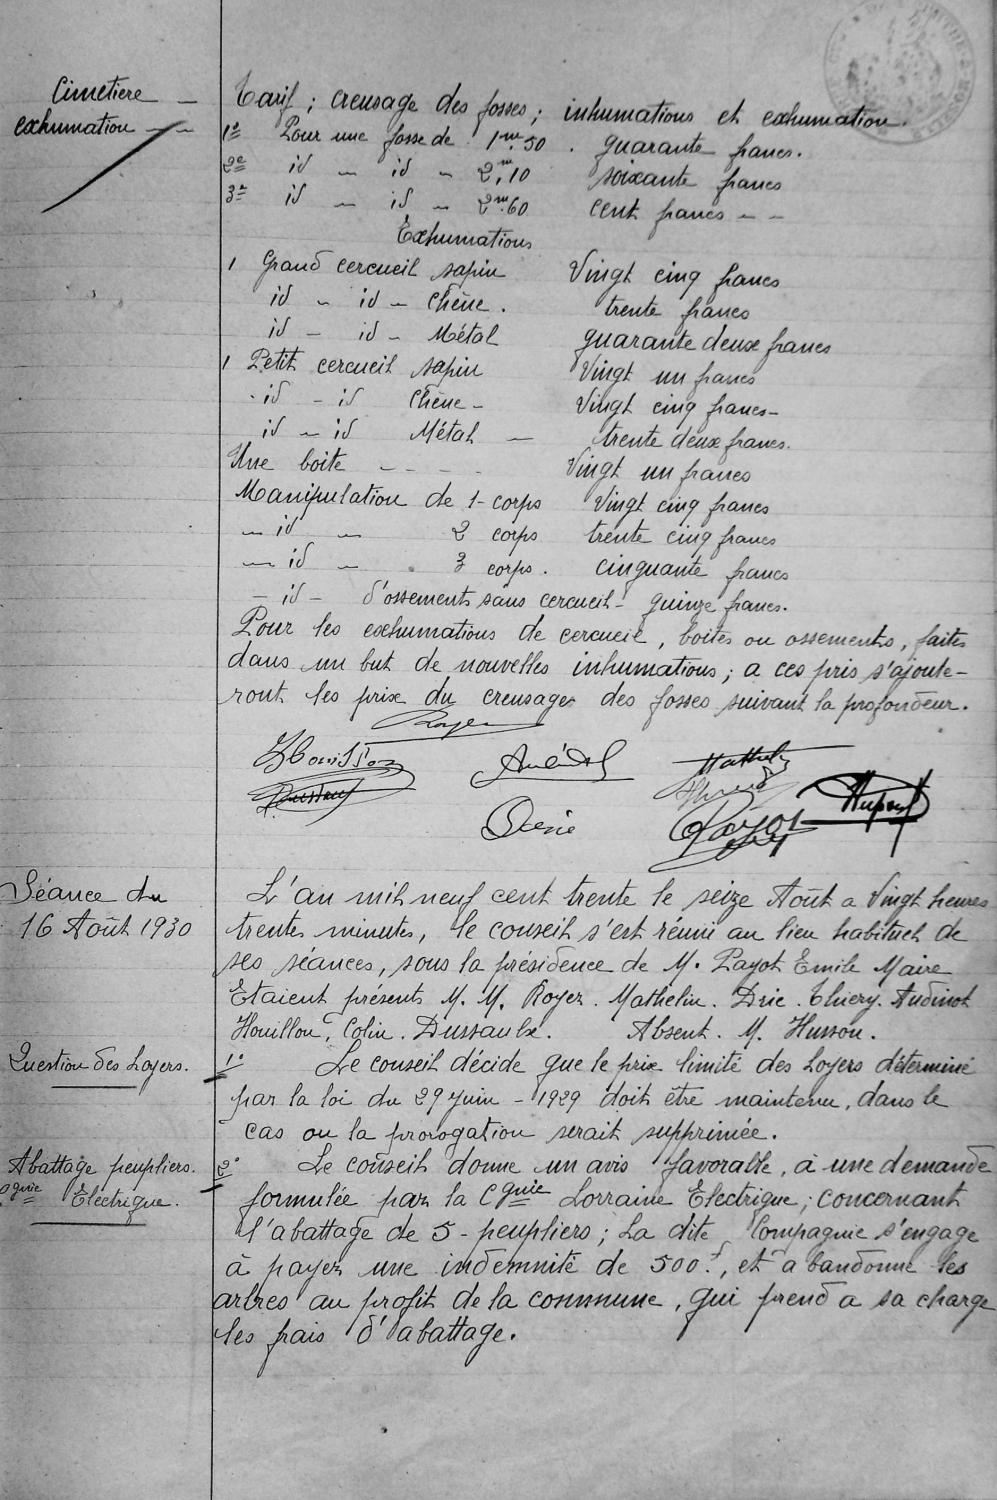 Cimetiere
exhumation
Tarif ; creusage des fosses ; inhumations et exhumation.
1º Pour une fosse de 1m50 . quarante francs.
2e id — id — 2m,10 soixante francs
3e id — id — 2m60 cent francs — —
Exhumations
1 Grand cercueil sapin Vingt cinq francs
id — id — Chêne . trente francs
id — id — Métal quarante deux francs
1 Petit cercueil sapin Vingt un francs
- id - id Chêne - Vingt cinq francs -
id — id Métal — trente deux francs.
Une boite - - - - Vingt un francs
Manipulation de 1 - corps Vingt cinq francs
— id — 2 corps trente cinq francs
— id — . 3 corps . cinquante francs
— id — d'ossements sans cercueil - quinze francs.
Pour les exhumations de cercueil, boites ou ossements, faites
dans un but de nouvelles inhumations ; a ces pris s'ajoute-
ront les prix du creusage des fosses suivant la profondeur.
Royer
Mathelin
Drie
Payot
Séance du
16 Août 1930
L'an mil neuf cent trente le seize Août a Vingt heures
trentes minutes, le conseil s'est réuni au lieu habituel de
ses séances, sous la présidence de M. Payot Emile Maire
Etaient présents M. M. Royer. Mathelin. Drie. Thiery. Audinot
Houillon, Colin. Dussaulx. Absent. M. Husson.
Question des Loyers.
1º Le conseil décide que le prix limite des Loyers déterminé
par la loi du 29 juin - 1929 doit être maintenu, dans le
cas ou la prorogation serait supprimée.
Abattage peupliers.
Cgnie Electrique.
2º Le conseil donne un avis favorable, à une demande
formulée par la Cgnie Lorraine Electrique ; concernant
l'abattage de 5 - peupliers ; La dite Compagnie s'engage
à payer une indemnité de 500f, et abandonne les
arbres au profit de la commune, qui prend a sa charge
les frais d'abattage.